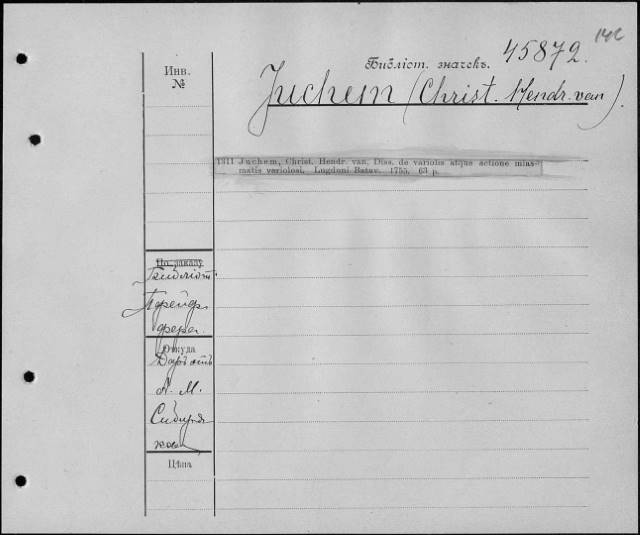 14c
Библіот. значекъ. 45872.
Инв.
№
Juchem (Christ. Hendr. van).
1311 Juchem, Christ. Hendr. van, Diss. de variolis atque actione mias-
matis variolosi. Lugduni Batav. 1755. 63 p.
По заказу
Библіот.
Пфейф-
фера.
Откуда
Даръ отъ
А. М.
Сибиря-
кова
Цѣна